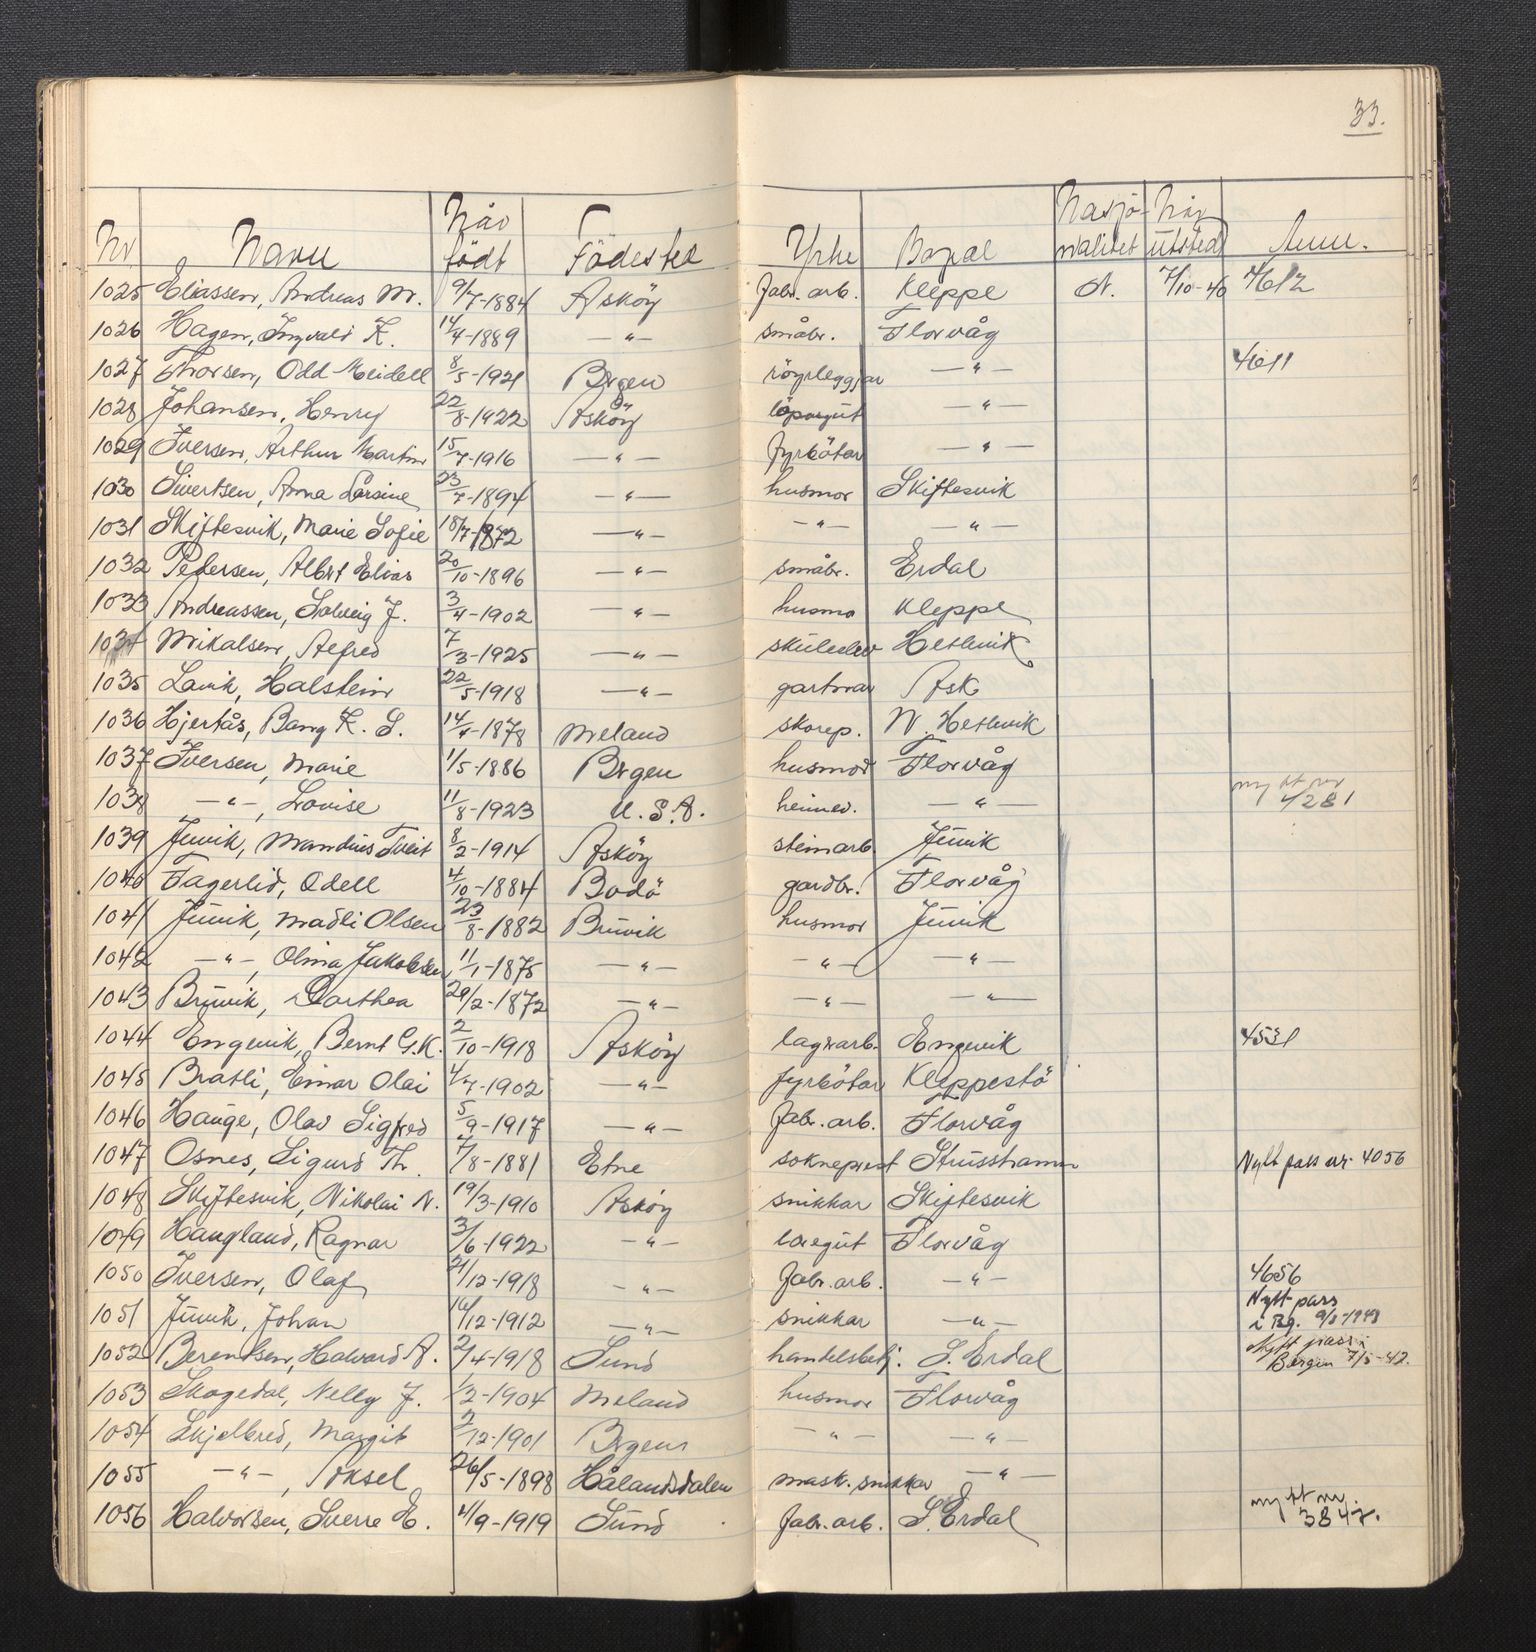 33.
Nr Navn Når födt Födested Yrke Bopæl Nasjonalitet Når utsted Anm.
1025 Eliassen, Andreas M. 9/7-1884 Asköy Fabr. arb. Kleppe N. 7/10-40 4612
1026 Hagen, Ingvald K. 14/4-1889 —"— småbr. Florvåg
1027 Thorsen, Odd Meidell 8/5-1921 Bergen röyrleggjar —"— 4611
1028 Johansen, Henry 22/8-1922 Asköy löpargut —"—
1029 Iversen, Arthur Martin 15/7-1916 —"— fyrbötar —"—
1030 Sivertsen, Anna Larsine 23/7-1894 —"— husmor Skiftesvik
1031 Skiftesvik, Marie Sofie 18/7-1872 —"— —"— —"—
1032 Pedersen, Albert Elias 20/10-1896 —"— småbr. Erdal
1033 Andreassen, Solveig J. 3/4-1902 —"— husmo Kleppe
1034 Mikalsen, Alfred 7/3-1925 —"— skuleelev Hetlevik
1035 Lavik, Halstein 22/5-1918 —"— gartnar Ask
1036 Hjertås, Bang K. S. 14/4-1878 Meland skorep. N. Hetlevik
1037 Iversen, Marie 11/5-1886 Bergen husmor Florvåg
1038 —"—, Lovise 11/8-1923 U.S.A. heimev. —"— nytt nr 4281
1039 Juvik, Mandius Tveit 8/2-1914 Asköy steinarb. Juvik
1040 Fagerlid, Odell 4/10-1884 Bodö gardbr. Florvåg
1041 Juvik, Madli Olsen 23/8-1882 Bruvik husmor Juvik
1042 —"—, Olina Jakobsen 11/1-1875 —"— —"— —"—
1043 Bruvik, Dorthea 29/2-1872 —"— —"— —"—
1044 Engevik, Bernt G.K. 2/10-1918 Asköy lagerarb. Engevik 4531
1045 Bratli, Einar Olai 4/7-1902 —"— fyrbötar Kleppestö
1046 Hauge, Olav Sigfred 5/9-1917 —"— Fabr. arb. Florvåg
1047 Osnes, Sigurd Th. 7/8-1881 Etne sokneprest Strusshamn Nytt pass nr. 4056
1048 Skiftesvik, Nikolai N. 19/3-1910 Asköy snikkar Skiftesvik
1049 Haugland, Ragnar 3/6-1922 —"— Florvåg
1050 Iversen, Olaf 21/12-1918 —"— Fabr. arb. —"— 4656
1051 Juvik, Johan 16/12-1912 —"— snikkar —"— Nytt pass i Bg. 9/8-1943
1052 Berentsen, Halvard A. 2/4-1918 Sund handelsbetj. S. Erdal Nytt pass i Bergen 7/5-42.
1053 Skogedal, Nelly J. 1/2-1904 Meland husmor Florvåg
1054 Skjelbred, Margit 2/12-1901 Bergen —"— —"—
1055 —"—, Aksel 26/5-1898 Hålandsdalen mask. snikkar —"—
1056 Halvorsen, Sverre E. 4/9-1919 Sund Fabr. arb. S. Erdal nytt nr. 3847.